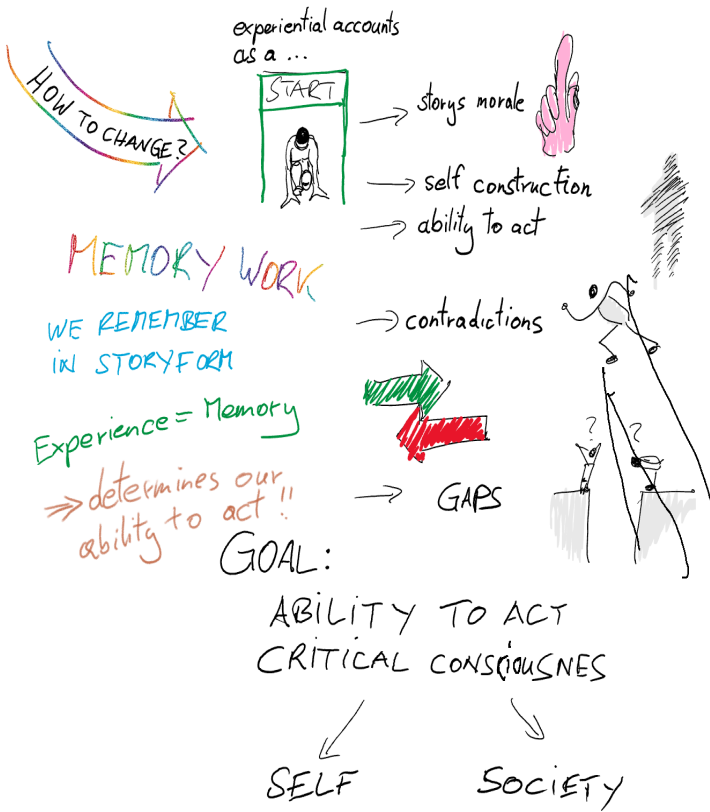 experiential accounts
as a ...
HOW TO CHANGE?
START
→ storys morale
→ self construction
→ ability to act
MEMORY WORK
WE REMEMBER
IN STORYFORM
→ contradictions
Experience = Memory
⇒ determines our
ability to act!!
? ?
→ GAPS
GOAL:
ABILITY TO ACT
CRITICAL CONSCIOUSNES
SELF
SOCIETY